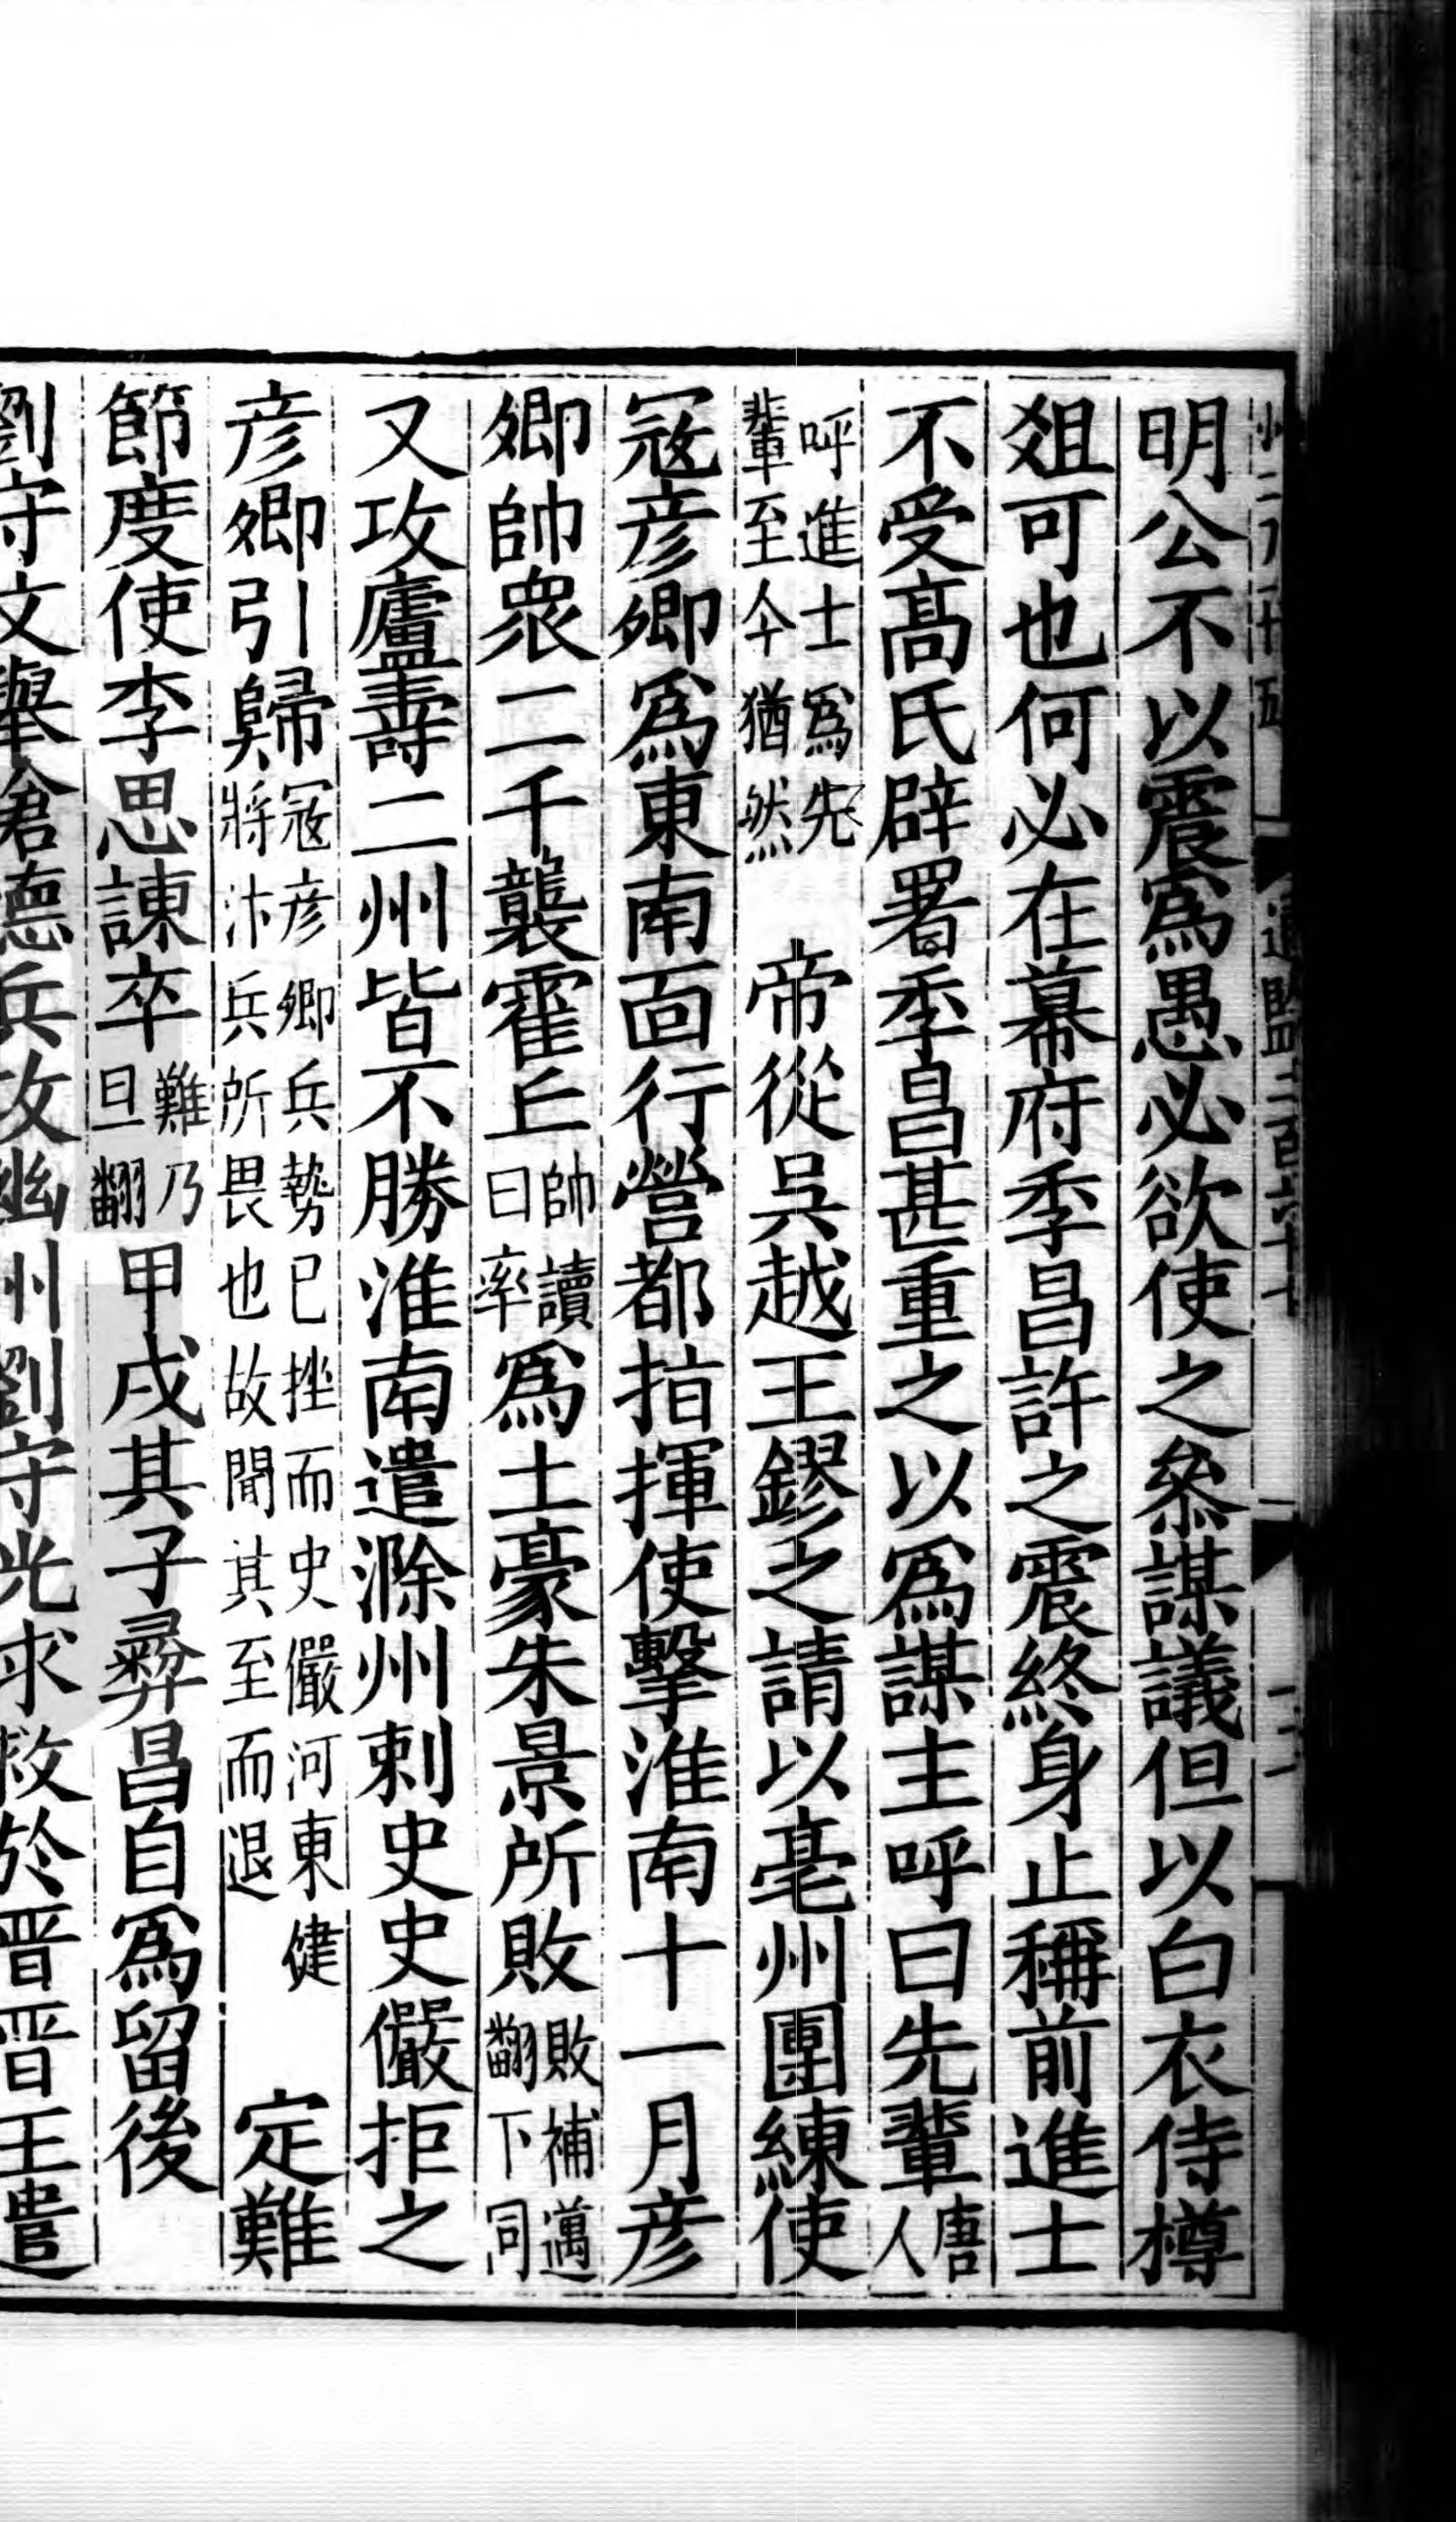 明公不以震爲愚必欲使之叅謀議但以白衣侍樽
俎可也何必在幕府季昌許之震終身止稱前進士
不受髙氏辟署季昌甚重之以爲謀主呼曰先輩唐人
呼進士爲先輩至今猶然 帝從吳越王鏐之請以亳州團練使
冦彦卿爲東南面行營都指揮使擊淮南十一月彦
卿帥衆二千襲霍丘帥讀曰率爲土豪朱景所敗敗補邁翻下同
又攻廬壽二州皆不勝淮南遣滁州刺史史儼拒之
彦卿引歸冦彦卿兵勢已挫而史儼河東健將汴兵所畏也故聞其至而退 定難
節度使李思諫卒難乃旦翻甲戌其子彛昌自爲留後
劉守文舉滄德兵攻幽州劉守光求救於晋晋王遣